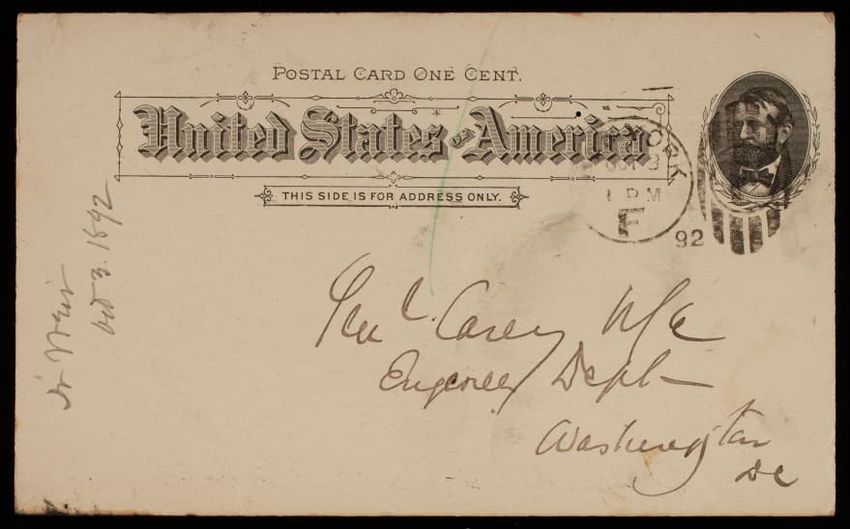 POSTAL CARD ONE CENT.
United States OF America
THIS SIDE IS FOR ADDRESS ONLY.
YORK
OCT 3
1 PM
F
92
Genl. Casey USA
Engineer Dept
Washington
DC
Oct 3. 1892